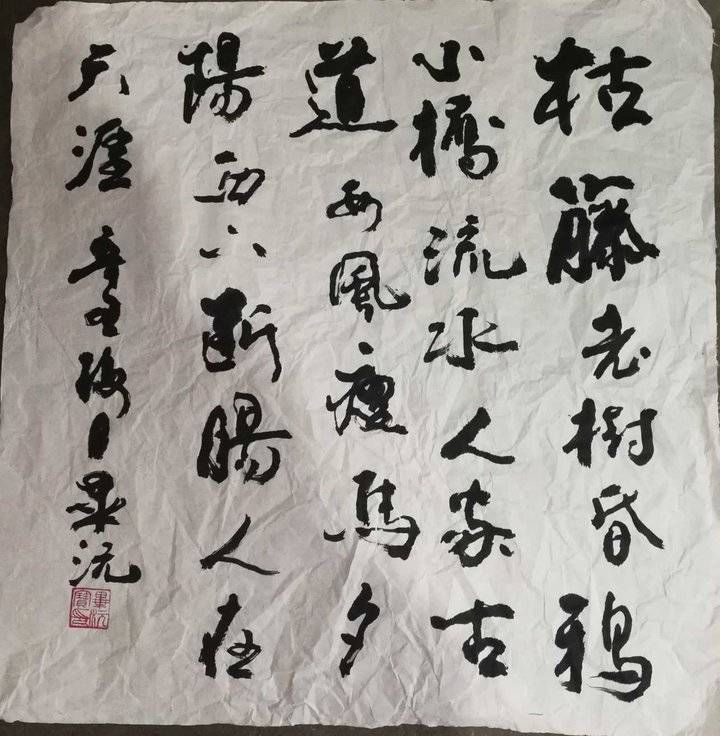 枯藤老樹昏鴉
小橋流水人家古
道西風瘦馬夕
陽西下断腸人在
天涯 辛丑梅月